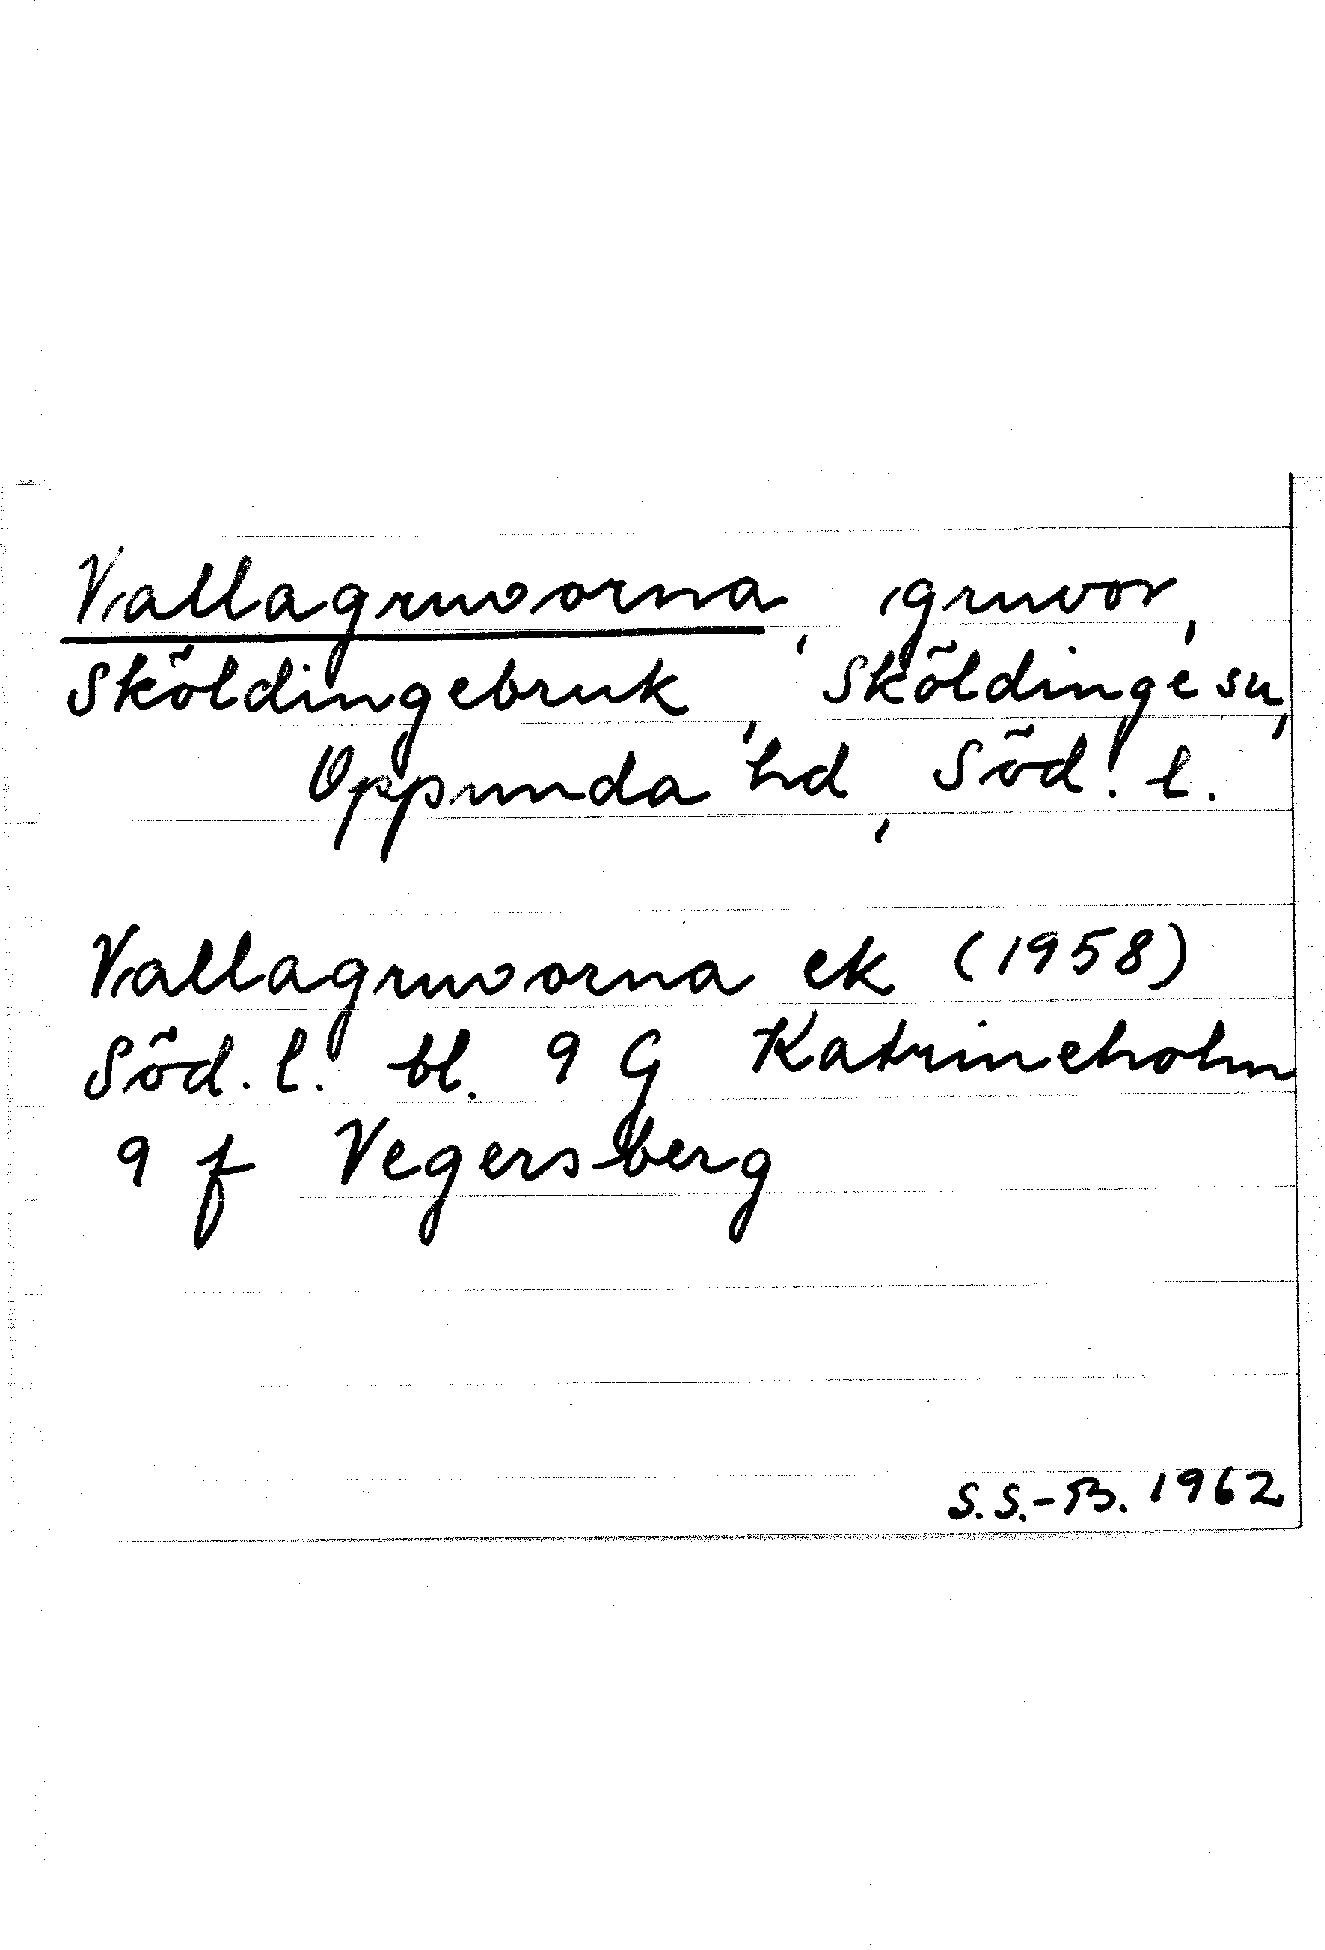 Vallagruvorna, gruvor,
Sköldingebruk, Sköldinge sn,
Oppunda hd, Söd. l.
Vallagruvorna ek (1958)
Söd. l. bl. 9 G Katrineholm
9 f Vegersberg
S.S.-B. 1962